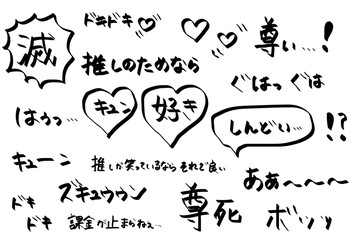 滅
ドキドキ♡
尊い…!
推しのためなら
ぐはっ ぐは
はうっ…
キュン
好き
しんどい…
!?
キューン
推しが笑っているなら それで良い
ああ〜〜〜〜
ドキ
ドキ
ズキュウウン
課金が止まらねぇ…
尊死
ボッッ